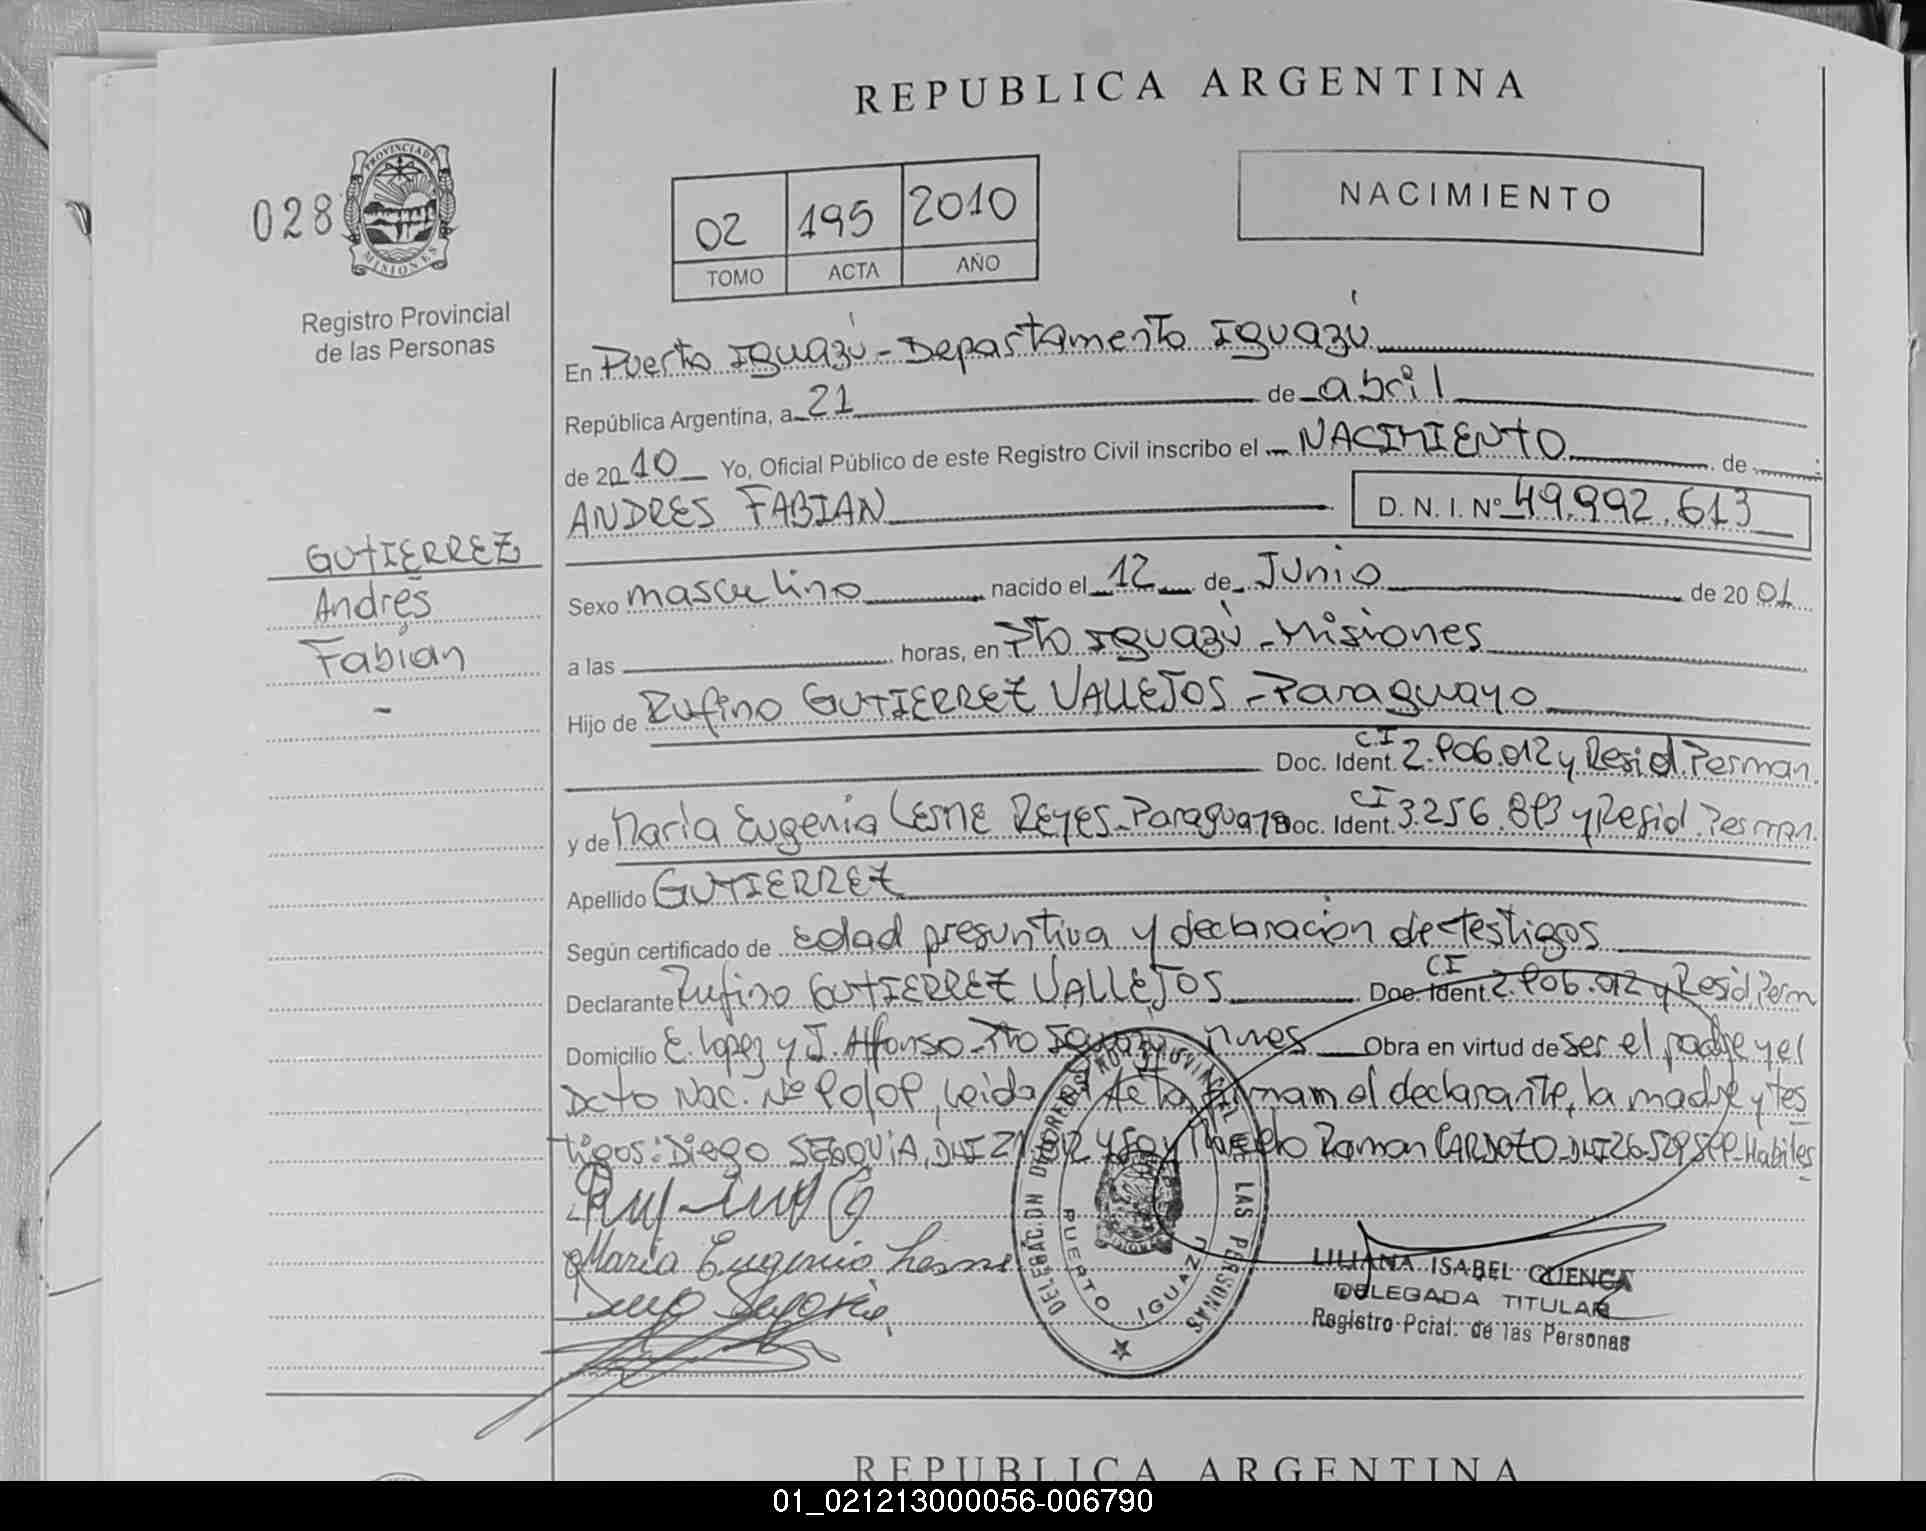 REPUBLICA ARGENTINA
028
PROVINCIA DE
MISIONES
Registro Provincial
de las Personas
02 195 2010
TOMO ACTA AÑO
NACIMIENTO
En Puerto Iguazú - Departamento Iguazú
República Argentina, a 21 de abril
de 2010 Yo, Oficial Público de este Registro Civil inscribo el NACIMIENTO de
ANDRES FABIAN D. N. I. Nº 49.992.613
GUTIERREZ
Andrés
Fabián
-
Sexo masculino nacido el 12 de Junio de 2001
a las horas, en Pto Iguazú - Misiones
Hijo de Rufino GUTIERREZ VALLEJOS - Paraguayo
Doc. Ident. CI 2.906.012 y Resid. Perman.
y de María Eugenia LESME REYES - Paraguaya Doc. Ident. CI 3.256.893 y Resid. Perman.
Apellido GUTIERREZ
Según certificado de edad presuntiva y declaración de testigos
Declarante Rufino GUTIERREZ VALLEJOS Doc. Ident. CI 2.906.012 y Resid. Perm
Domicilio E. Lopez y J. Alfonso - Pto Iguazú Obra en virtud de ser el padre y el
Dcto Nac. Nº 90/09, leida el Acta firman el declarante, la madre y tes
tigos: Diego SEGOVIA, DNI y Ramon CARDOZO - DNI 26.529.599 - Habiles
María Eugenia Lesme
Diego Segovia
DELEGACION PROVINCIAL DE LAS PERSONAS
PUERTO IGUAZU
LILIANA ISABEL CUENCA
DELEGADA TITULAR
Registro Pcial. de las Personas
REPUBLICA ARGENTINA
01_021213000056-006790